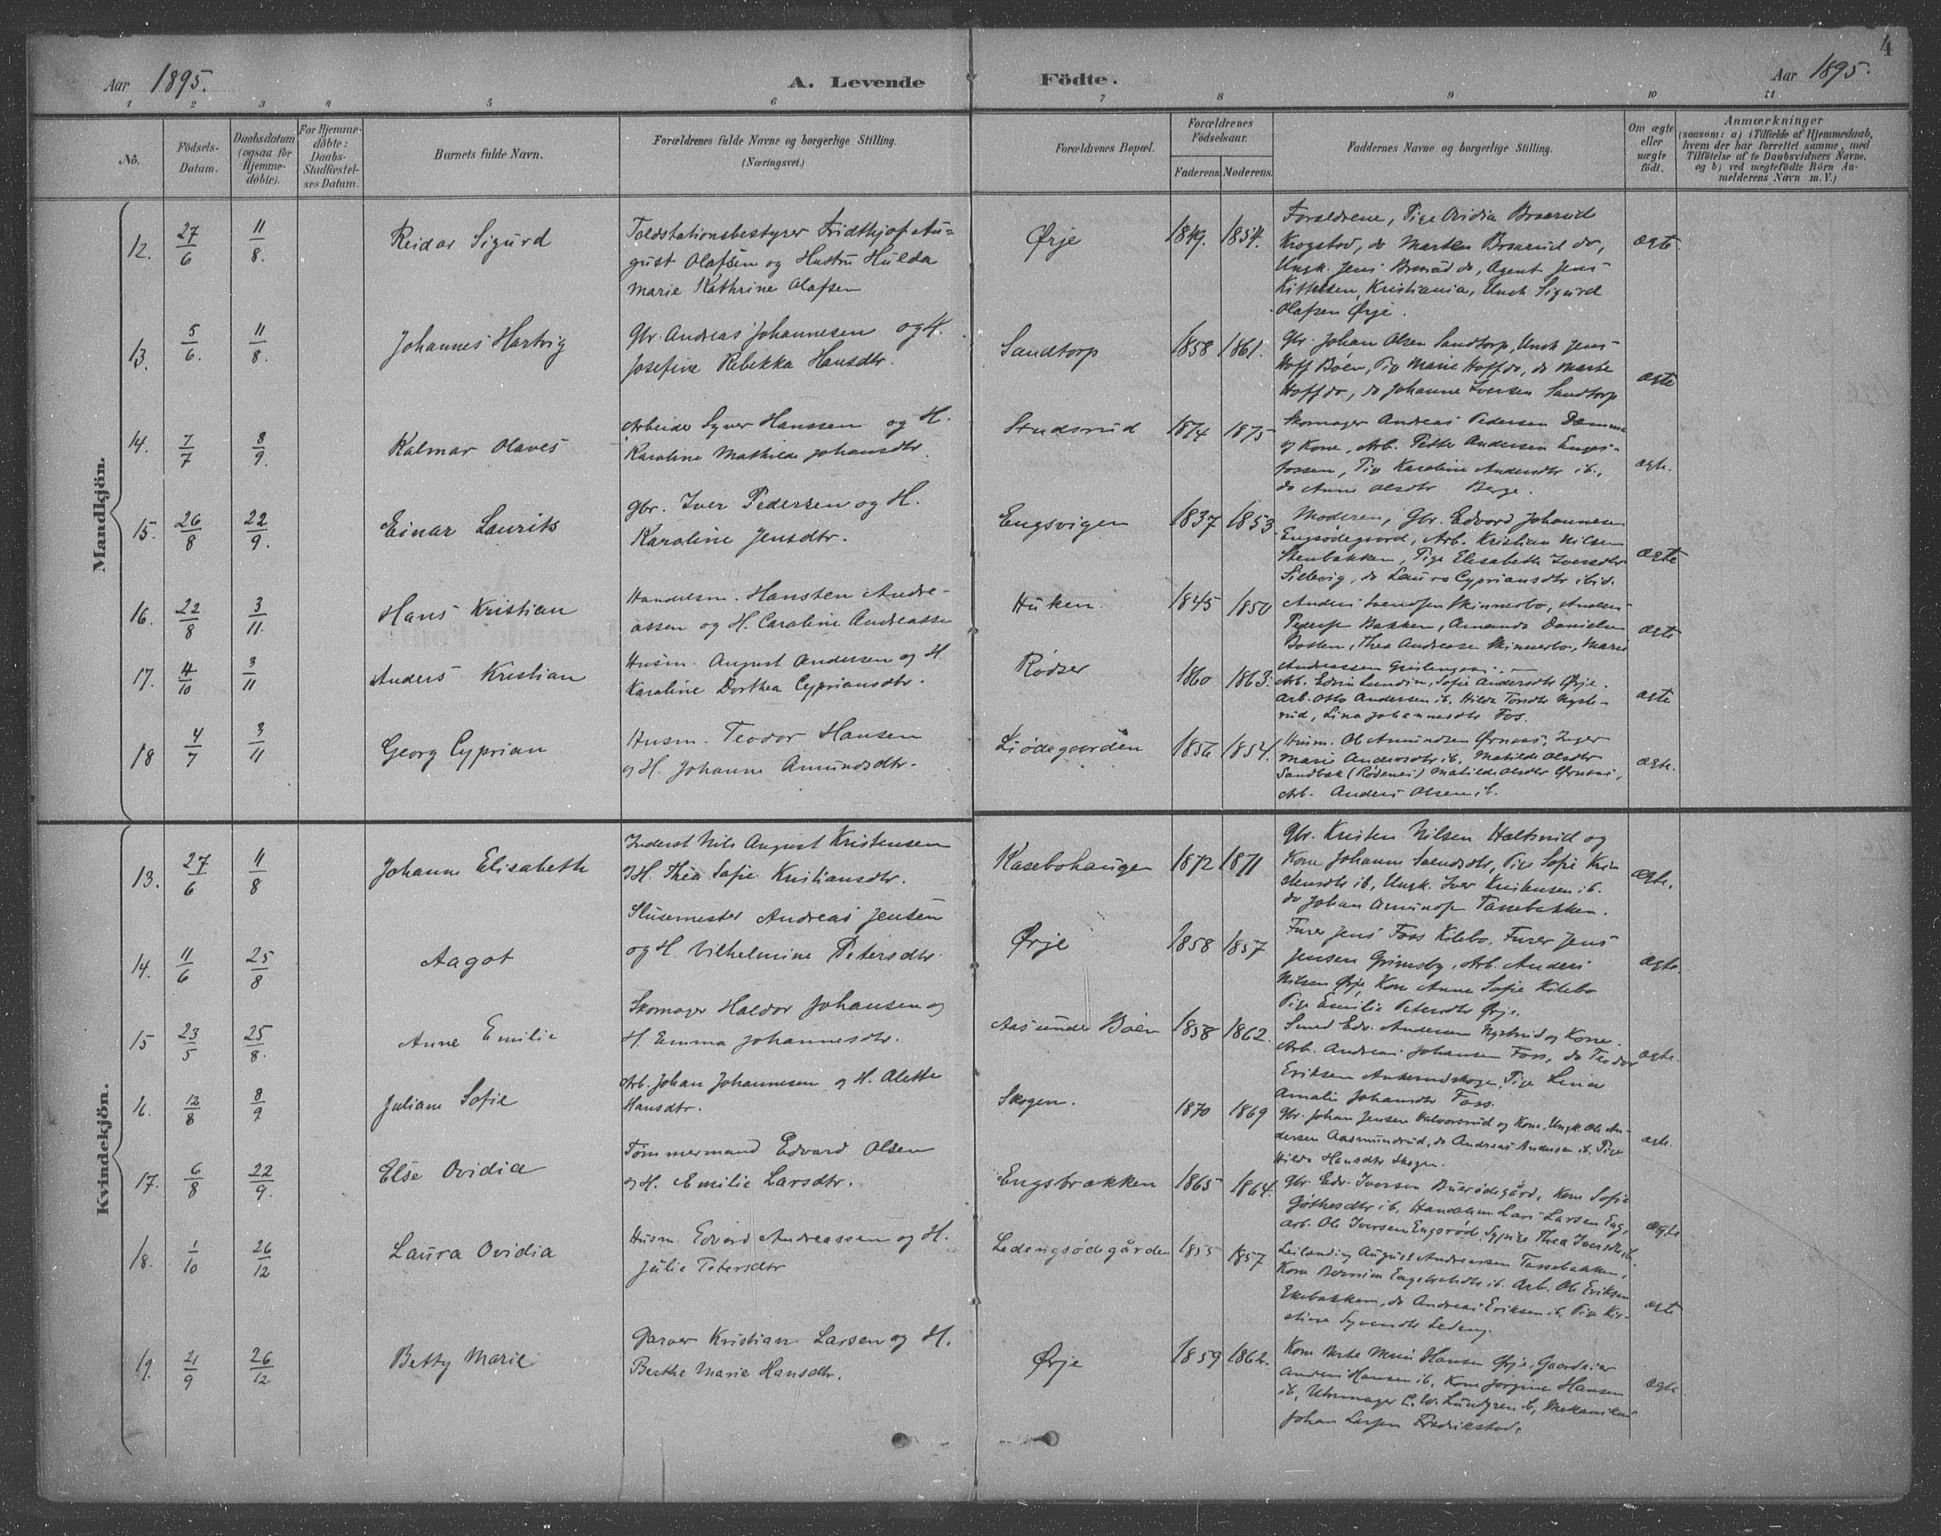 4
Aar 1895. A. Levende Födte. Aar 1895.
1 2 3 4 5 6 7 8 9 10 11
No.
Födsels-Datum.
Daabsdatum (ogsaa for Hjemme-døbte).
For Hjemme-døbte: Daabs-Stadfæstel-ses Datum.
Barnets fulde Navn.
Forældrenes fulde Navne og borgerlige Stilling.
(Næringsvei.)
Forældrenes Bopæl.
Forældrenes Födselsaar.
Faderens. Moderens.
Faddernes Navne og borgerlige Stilling.
Om ægte eller uægte födt.
Anmærkninger
(saasom: a) i Tilfælde af Hjemmedaab,
hvem der har forrettet samme, med
Tilföielse af to Daabsvidners Navne,
og b) ved uægtefödte Börn An-
melderens Navn m. V.)
Mandkjön.
12. 27/6 11/8. Reidar Sigurd
Toldstationsbestyrer Fridthjof Au-
gust Olafsen og Hustru Hulda
Marie Kathrine Olafsen
Ørje 1849. 1854.
Forældrene, Pige Ovidia Braarud
Krogstad, do Marten Braarud do,
Ungk. Jens Braarud do, Agent Jens
Kittelsen, Kristiania, Ungk Sigurd
Olafsen Ørje.
ægte
13. 5/6. 11/8. Johannes Hartvig
Gbr. Andreas Johannesen og H.
Josefine Rebekka Hansdtr.
Sandtorp 1858 1861.
Gbr. Johan Olsen Sandtorp, Ungk Jens
Hoff Böen, Pig Marie Hoff do, do Marte
Hoff do, do Johanne Iversen Sandtorp
ægte
14. 7/7 8/9. Kalmar Olaves
Arbeider Syver Hanssen og H.
Karoline Mathilde Johansdtr.
Studsrud 1874 1875
Skomager Andreas Pedersen Damme
og Kone, Arb. Petter Andersen Engs-
fossen, Pig Karoline Andersdtr ib.,
do Anne Olsdtr Berge.
ægte.
15. 26/8 22/9. Einar Laurits
Gbr. Iver Pedersen og H.
Karoline Jensdtr.
Engsvigen 1837 1853
Moderen, Gbr. Edvard Johannesen
Engsødegaard, Arb. Kristian Nilsen
Stenbakken, Pige Elisabeth Iversdtr
Sielevig, do Laura Cypriansdtr ibid.
ægte
16. 22/8 3/11. Hans Kristian
Handelsm. Hansten Andre-
assen og H. Caroline Andreasse
Huken. 1845 1850
Anders Svendsen Skinnerbo, Anders
Peders Bakken, Amanda Danielsen
Bakken, Thea Andreasse Skinnerbo, Marie
Andreassen
ægte
17. 4/10 3/11 Anders Kristian
Husm. August Andersen og H.
Karoline Dorthea Cypriansdtr.
Rödser 1860 1863.
Arb. Edvin Lundin, Sofie Andersdtr Ørje.
Arb. Otto Andersen ib. Hilda Torsdtr Nyste-
rud, Lina Johannesdtr Fos.
ægte
18 4/7 3/11 Georg Cyprian
Husm. Teodor Hansen
og H. Johanne Amundsdtr.
Liödegaarden 1856 1854.
Husm. Ole Amundsen Ørnæs, Inger
Marie Andersdtr ib, Matilde Olsdtr
Sandbæk (Rødenes) Matilde Olsdtr Ørnæs,
Arb. Anders Olsen ib.
ægte.
Kvindekjön.
13. 27/6 11/8 Johanne Elisabeth
Inderst Nils August Kristensen
og H. Thea Sofie Kristiansdtr.
Kasebohaugen 1872 1871
Gbr. Kristen Nilsen Hæltsrud og
Kone Johanne Svendsdtr, Pige Sofie Kri-
stensdtr ib, Ungk. Iver Kristensen ib.
do Johan Amunds Tassebakken.
ægte.
14. 11/6 25/8 Aagot
Slusemester Andreas Jensen
og H. Vilhelmine Petersdtr.
Ørje 1858 1857
Furer Jens Foss Kilebo. Furer Jens
Jensen Grimsby, Arb. Anders
Nilsen Ørje, Kone Anne Sofie Kilebo
Pige Emilie Petersdtr Ørje.
ægte.
15 23/5 25/8. Anne Emilie
Skomager Haldor Johansen og
H. Emma Johannesdtr.
Aas under Böen 1858 1862.
Smed Edv. Andersen Nystrud og Kone.
Arb. Andreas Johansen Foss, do Teodor
Eriksen Ankerudskogen, Pige Lina
Amalie Johansdtr Foss.
ægte.
16. 12/8 8/9 Juliane Sofie
Arb. Johan Johannesen og H. Alette
Hansdtr.
Skogen. 1870 1869
Gbr. Johan Jensen Halvorsrud og Kone, Ungk. Ole An-
dersen Aasmundrud, do Andreas Andersen ib. Pige
Hilda Hansdtr Skogen.
ægte.
17. 6/8 22/9. Else Ovidia
Tømmermand Edvard Olsen
og H. Emilie Larsdtr.
Engsbrækken 1865 1864.
Gbr. Edv. Iversen Buerödegård, Kone Sofie
Göthesdtr ib, Handelsm Lars Larsen Eng,
Arb. Ole Iversen Engsrød, Thea Iversdtr ib.
ægte
18. 1/10 26/12 Laura Ovidia
Husm. Edvard Andreassen og H.
Julie Petersdtr
Ledengsødegården 1855 1857
Leilænding August Andreassen Tassebakken,
Kone Engebretsdtr ib. Arb. Ole Eriksen
Ekebakken, do Andreas Eriksen ib. Pige Kri-
stine Syversdtr Ledeng.
ægte
19. 21/9 26/12 Betty Marie
Garver Kristian Larsen og H.
Berthe Marie Hansdtr.
Ørje 1859 1862.
Kone Marie Hansen Ørje, Gaardeier
Anders Hansen ib, Kone Jörgine Hansen
ib, Uhrmager C. W. Lundgren ib, Mekaniker
Johan Larsen Fredrikstad.
ægte